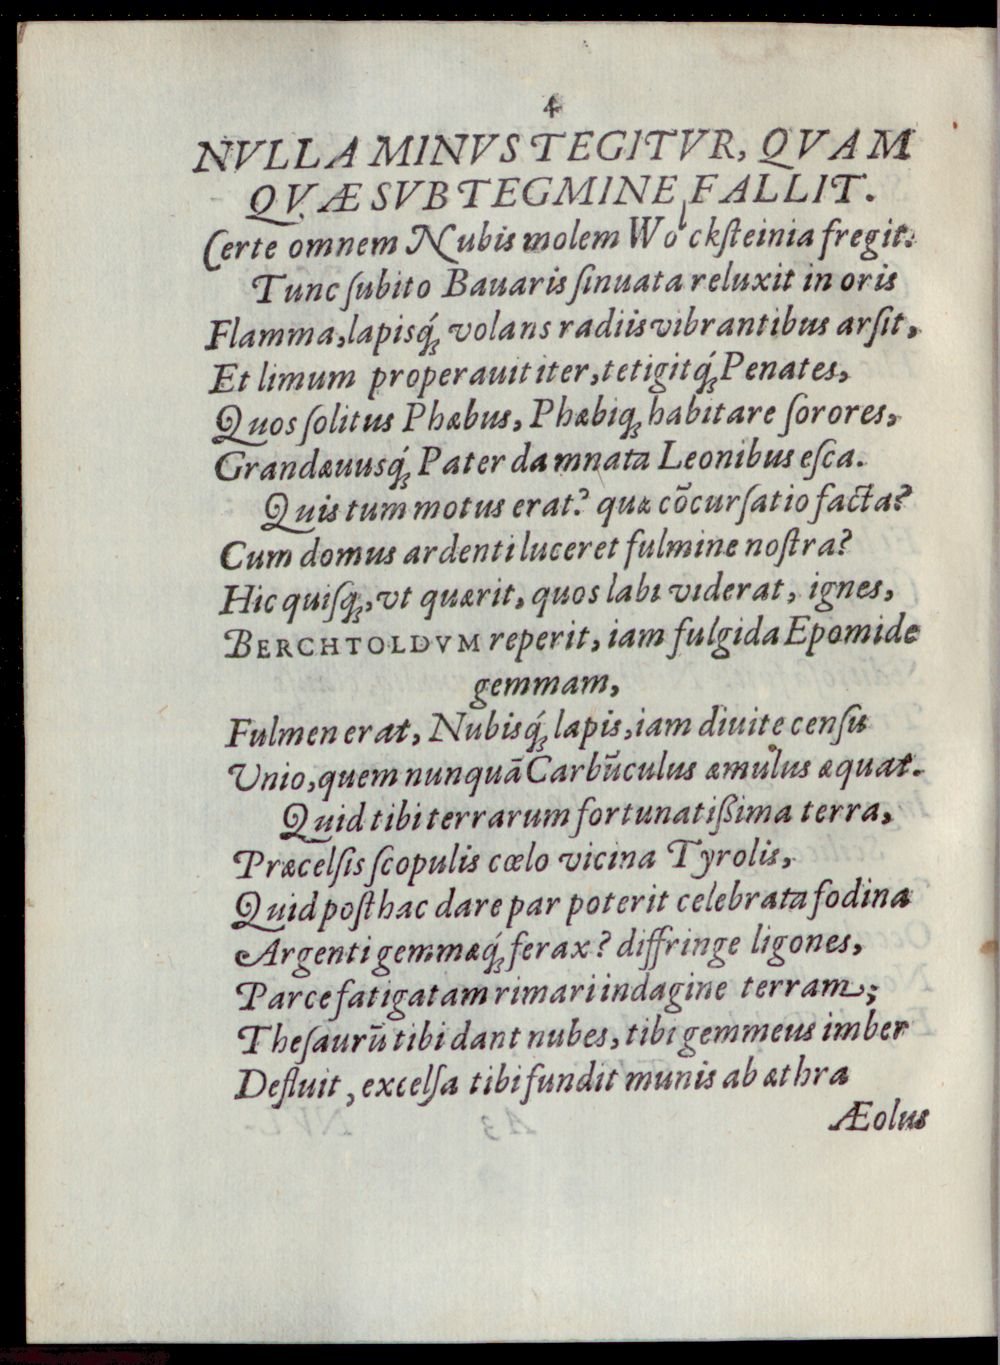 4
NVLLA MINVS TEGITVR, QVAM
QVÆ SVB TEGMINE FALLIT.
Certe omnem Nubis molem Wockſteinia fregit.
Tunc ſubito Bauaris ſinuata reluxit in oris
Flamma, lapisq́ꝫ volans radiis vibrantibus arſit,
Et limum properauit iter, tetigitq́ꝫ Penates,
Quos ſolitus Phæbus, Phæbiqꝫ habitare ſorores,
Grandæuusq́ꝫ Pater damnata Leonibus eſca.
Quis tum motus erat? quæ cōcurſatio facta?
Cum domus ardenti luceret fulmine noſtra?
Hic quiſqꝫ, vt quærit, quos labi viderat, ignes,
BERCHTOLDVM reperit, iam fulgida Epomide
gemmam,
Fulmen erat, Nubisq́ꝫ lapis, iam diuite cenſu
Vnio, quem nunquā Carbūculus æmulus æquat.
Quid tibi terrarum fortunatißima terra,
Præcelſis ſcopulis cœlo vicina Tyrolis,
Quid poſthac dare par poterit celebrata fodina
Argenti gemmæq́ꝫ ferax? diffringe ligones,
Parce fatigatam rimari indagine terram;
Theſaurū tibi dant nubes, tibi gemmeus imber
Defluit, excelſa tibi fundit munis ab æthra
Æolus